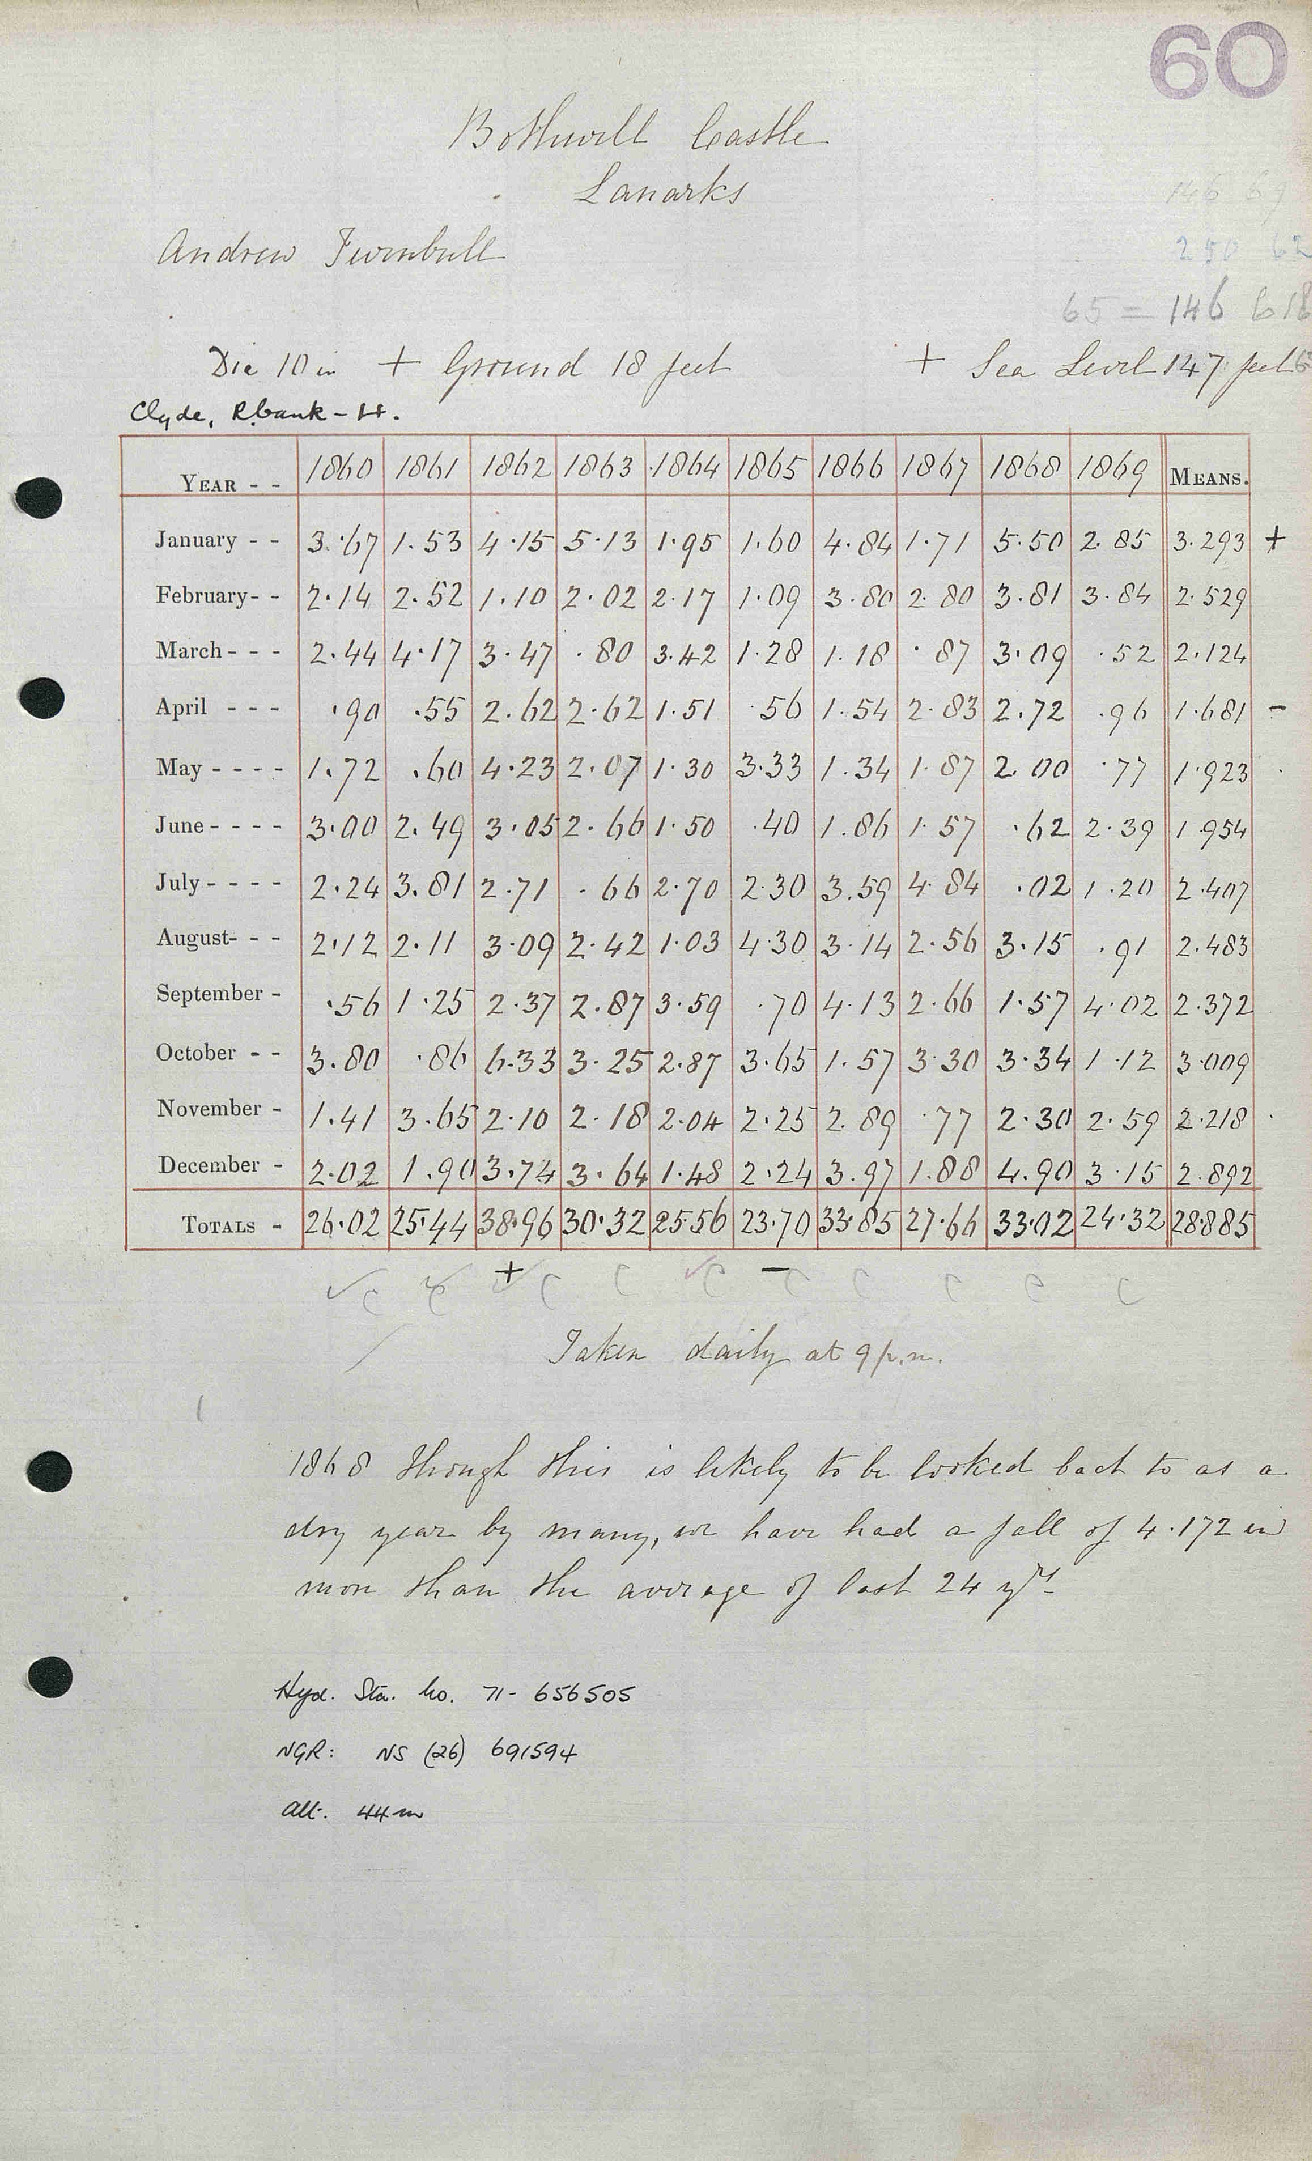 60
Bothwell Castle
Lanarks
Andrew Turnbull
65 = 146
Dia 10 in + Ground 18 feet + Sea Level 147 feet
Clyde, Rbank - H.
YEAR - - 1860 1861 1862 1863 1864 1865 1866 1867 1868 1869 MEANS.
January - - 3.67 1.53 4.15 5.13 1.95 1.60 4.84 1.71 5.50 2.85 3.293 +
February - - 2.14 2.52 1.10 2.02 2.17 1.09 3.80 2.80 3.81 3.84 2.529
March - - - 2.44 4.17 3.47 .80 3.42 1.28 1.18 .87 3.09 .52 2.124
April - - - .90 .55 2.62 2.62 1.51 .56 1.54 2.83 2.72 .96 1.681 -
May - - - - 1.72 .60 4.23 2.07 1.30 3.33 1.34 1.87 2.00 .77 1.923
June - - - - 3.00 2.49 3.05 2.66 1.50 .40 1.86 1.57 .62 2.39 1.954
July - - - - 2.24 3.81 2.71 .66 2.70 2.30 3.59 4.84 .02 1.20 2.407
August - - - 2.12 2.11 3.09 2.42 1.03 4.30 3.14 2.56 3.15 .91 2.483
September - .56 1.25 2.37 2.87 3.59 .70 4.13 2.66 1.57 4.02 2.372
October - - 3.80 .86 6.33 3.25 2.87 3.65 1.57 3.30 3.34 1.12 3.009
November - 1.41 3.65 2.10 2.18 2.04 2.25 2.89 .77 2.30 2.59 2.218
December - 2.02 1.90 3.74 3.64 1.48 2.24 3.97 1.88 4.90 3.15 2.892
TOTALS - 26.02 25.44 38.96 30.32 25.56 23.70 33.85 27.66 33.02 24.32 28.885
+ -
Taken daily at 9 p.m.
1868 though this is likely to be looked back to as a
dry year by many, we have had a fall of 4.172 in
more than the average of last 24 yrs
Hyd. Sta. No. 71- 656505
NGR: NS (26) 691594
Alt. 44m